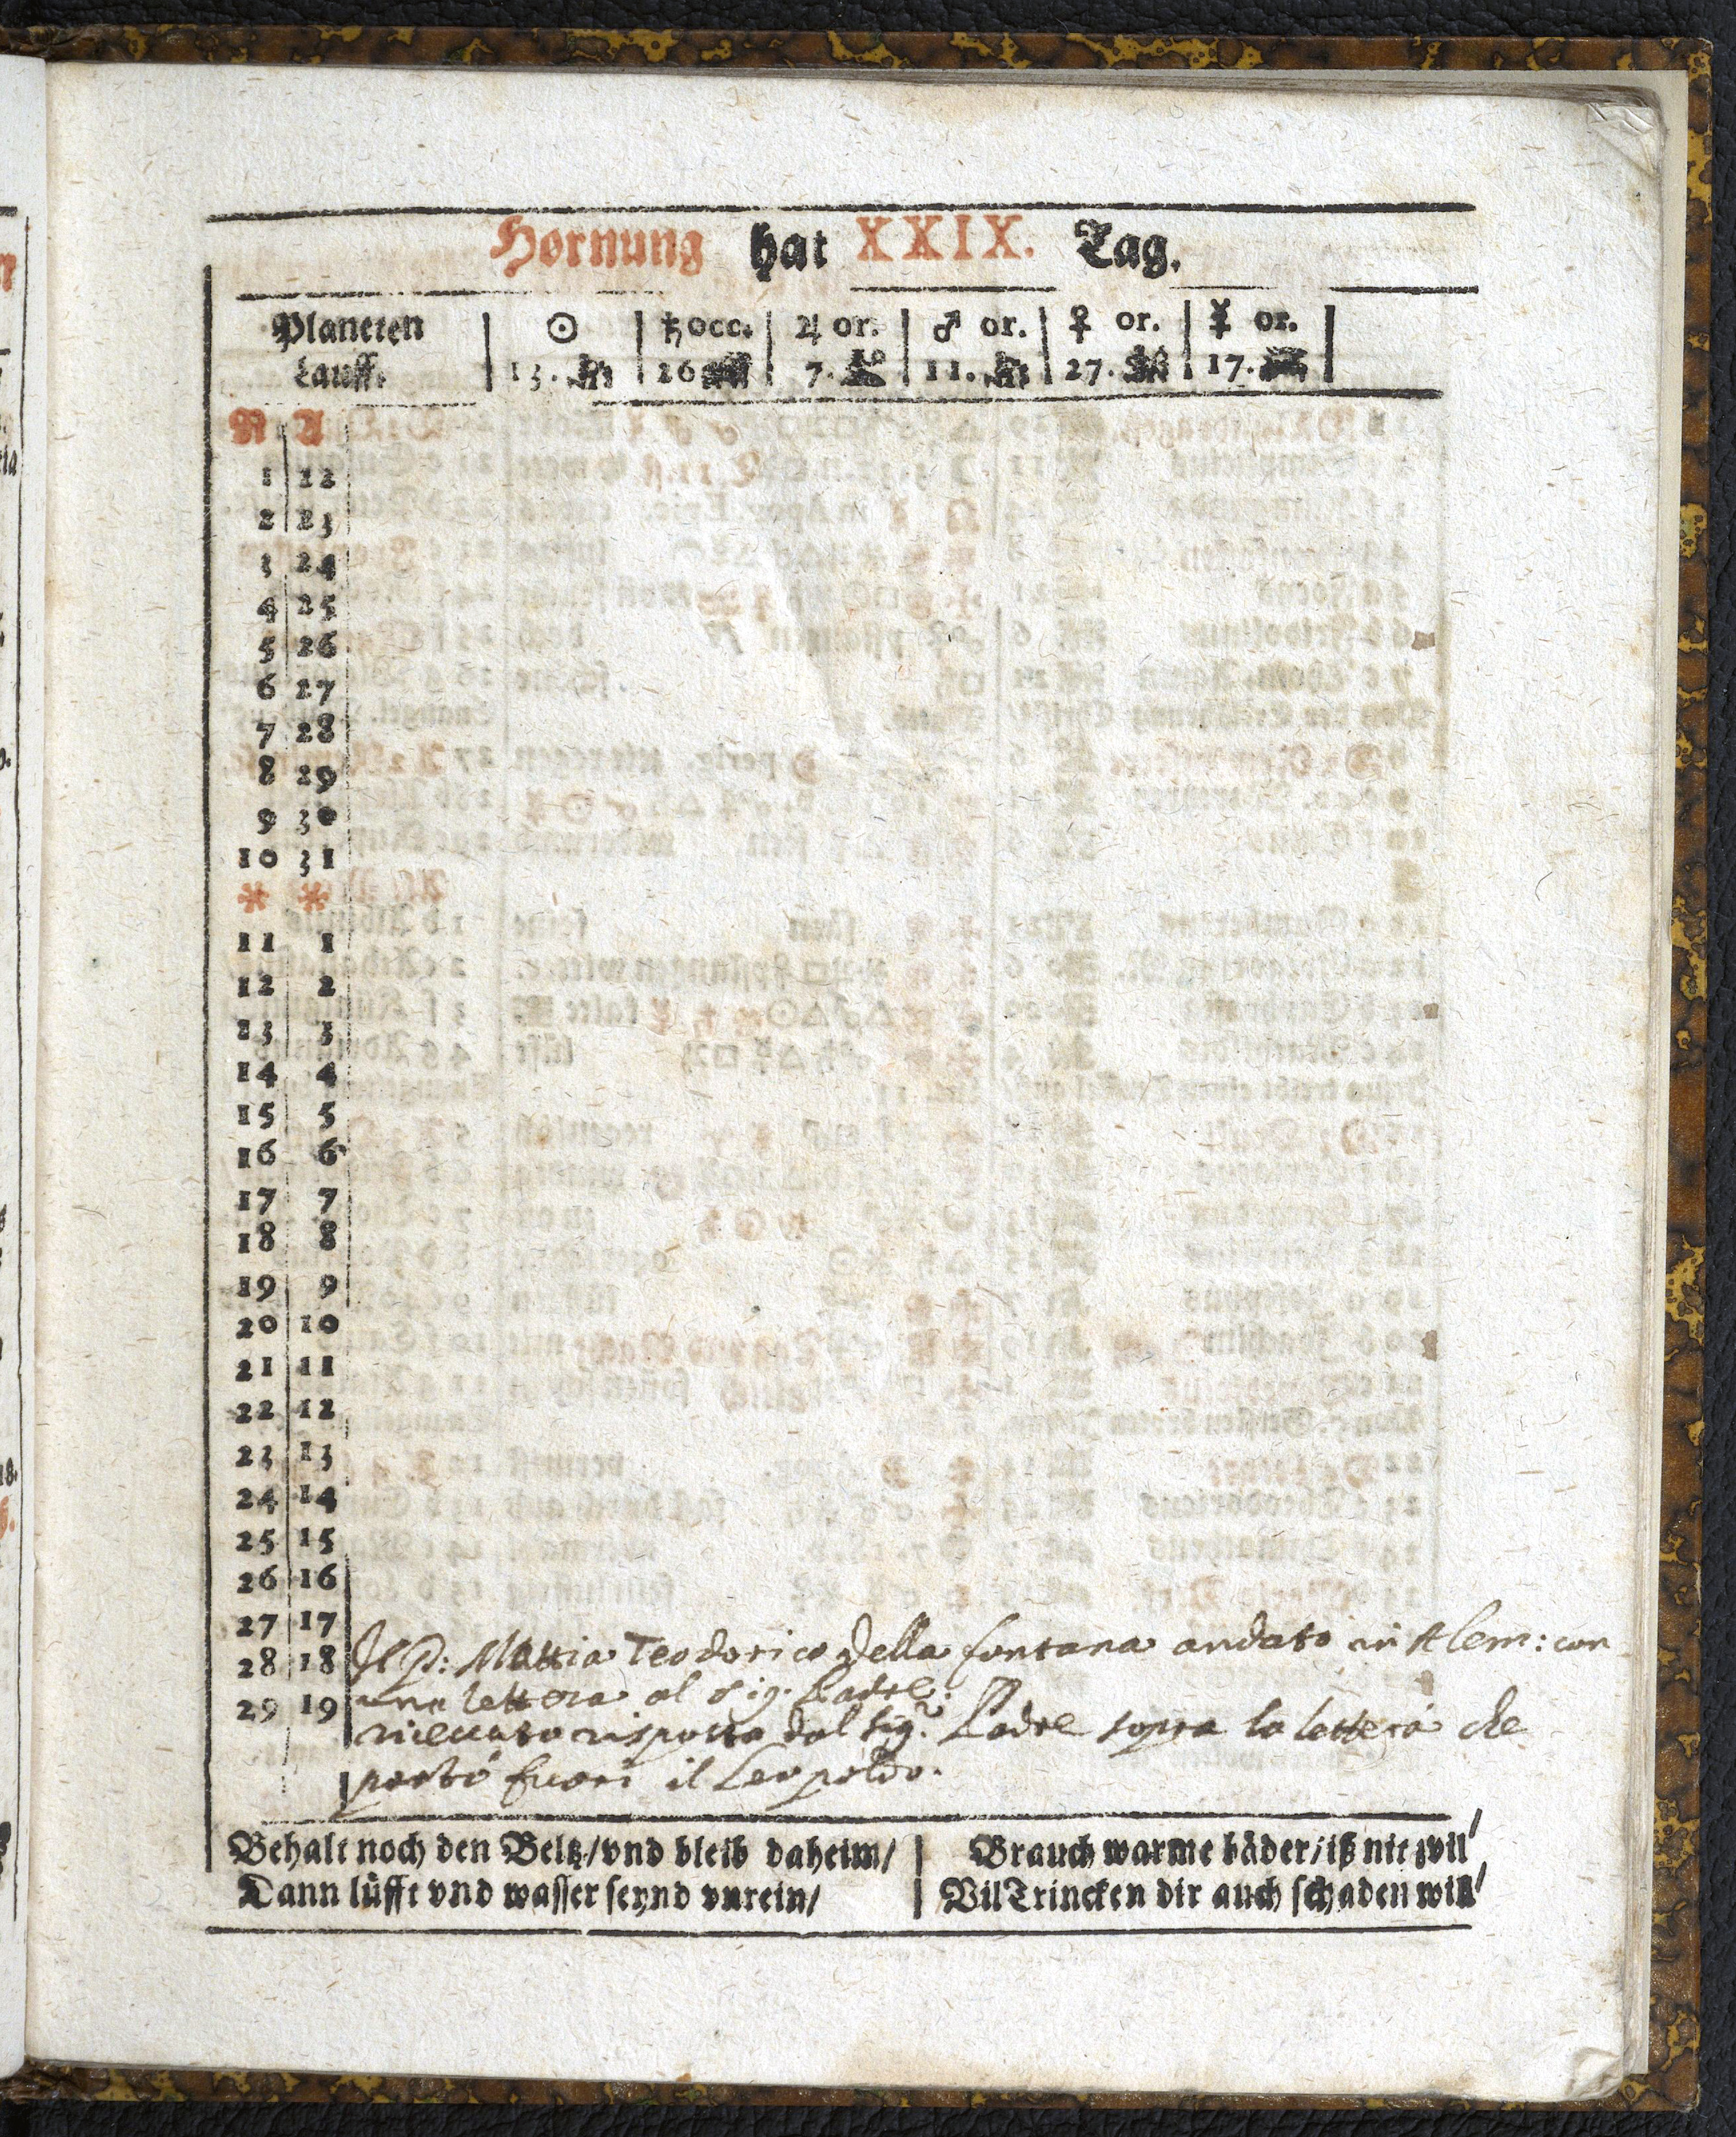 Hornung hat XXIX. Tag.
Planeten | ☉ | ♄ occ. | ♃ or. | ♂ or. | ♀ or. | ☿ or.
Lauff. | 13. | 26 | 7. | 11. | 27. | 17.
N A
1 22
2 23
3 24
4 25
5 26
6 27
7 28
8 29
9 30
10 31
* *
11 1
12 2
13 3
14 4
15 5
16 6
17 7
18 8
19 9
20 10
21 11
22 12
23 13
24 14
25 15
26 16
27 17
28 18 Il P: Mattia Teodorico della fontana andato in Alem: con
29 19 una lettera al sig. Padre.
riceuuto risposta dal sig.r Padre sopra la lettera che
portò fuori il Leopoldo.
Behalt noch den Beltz/vnd bleib daheim/ | Brauch warme bäder/iß nit zvil/
Dann lüfft vnd wasser seynd vnrein/ | Vil Trincken dir auch schaden will/